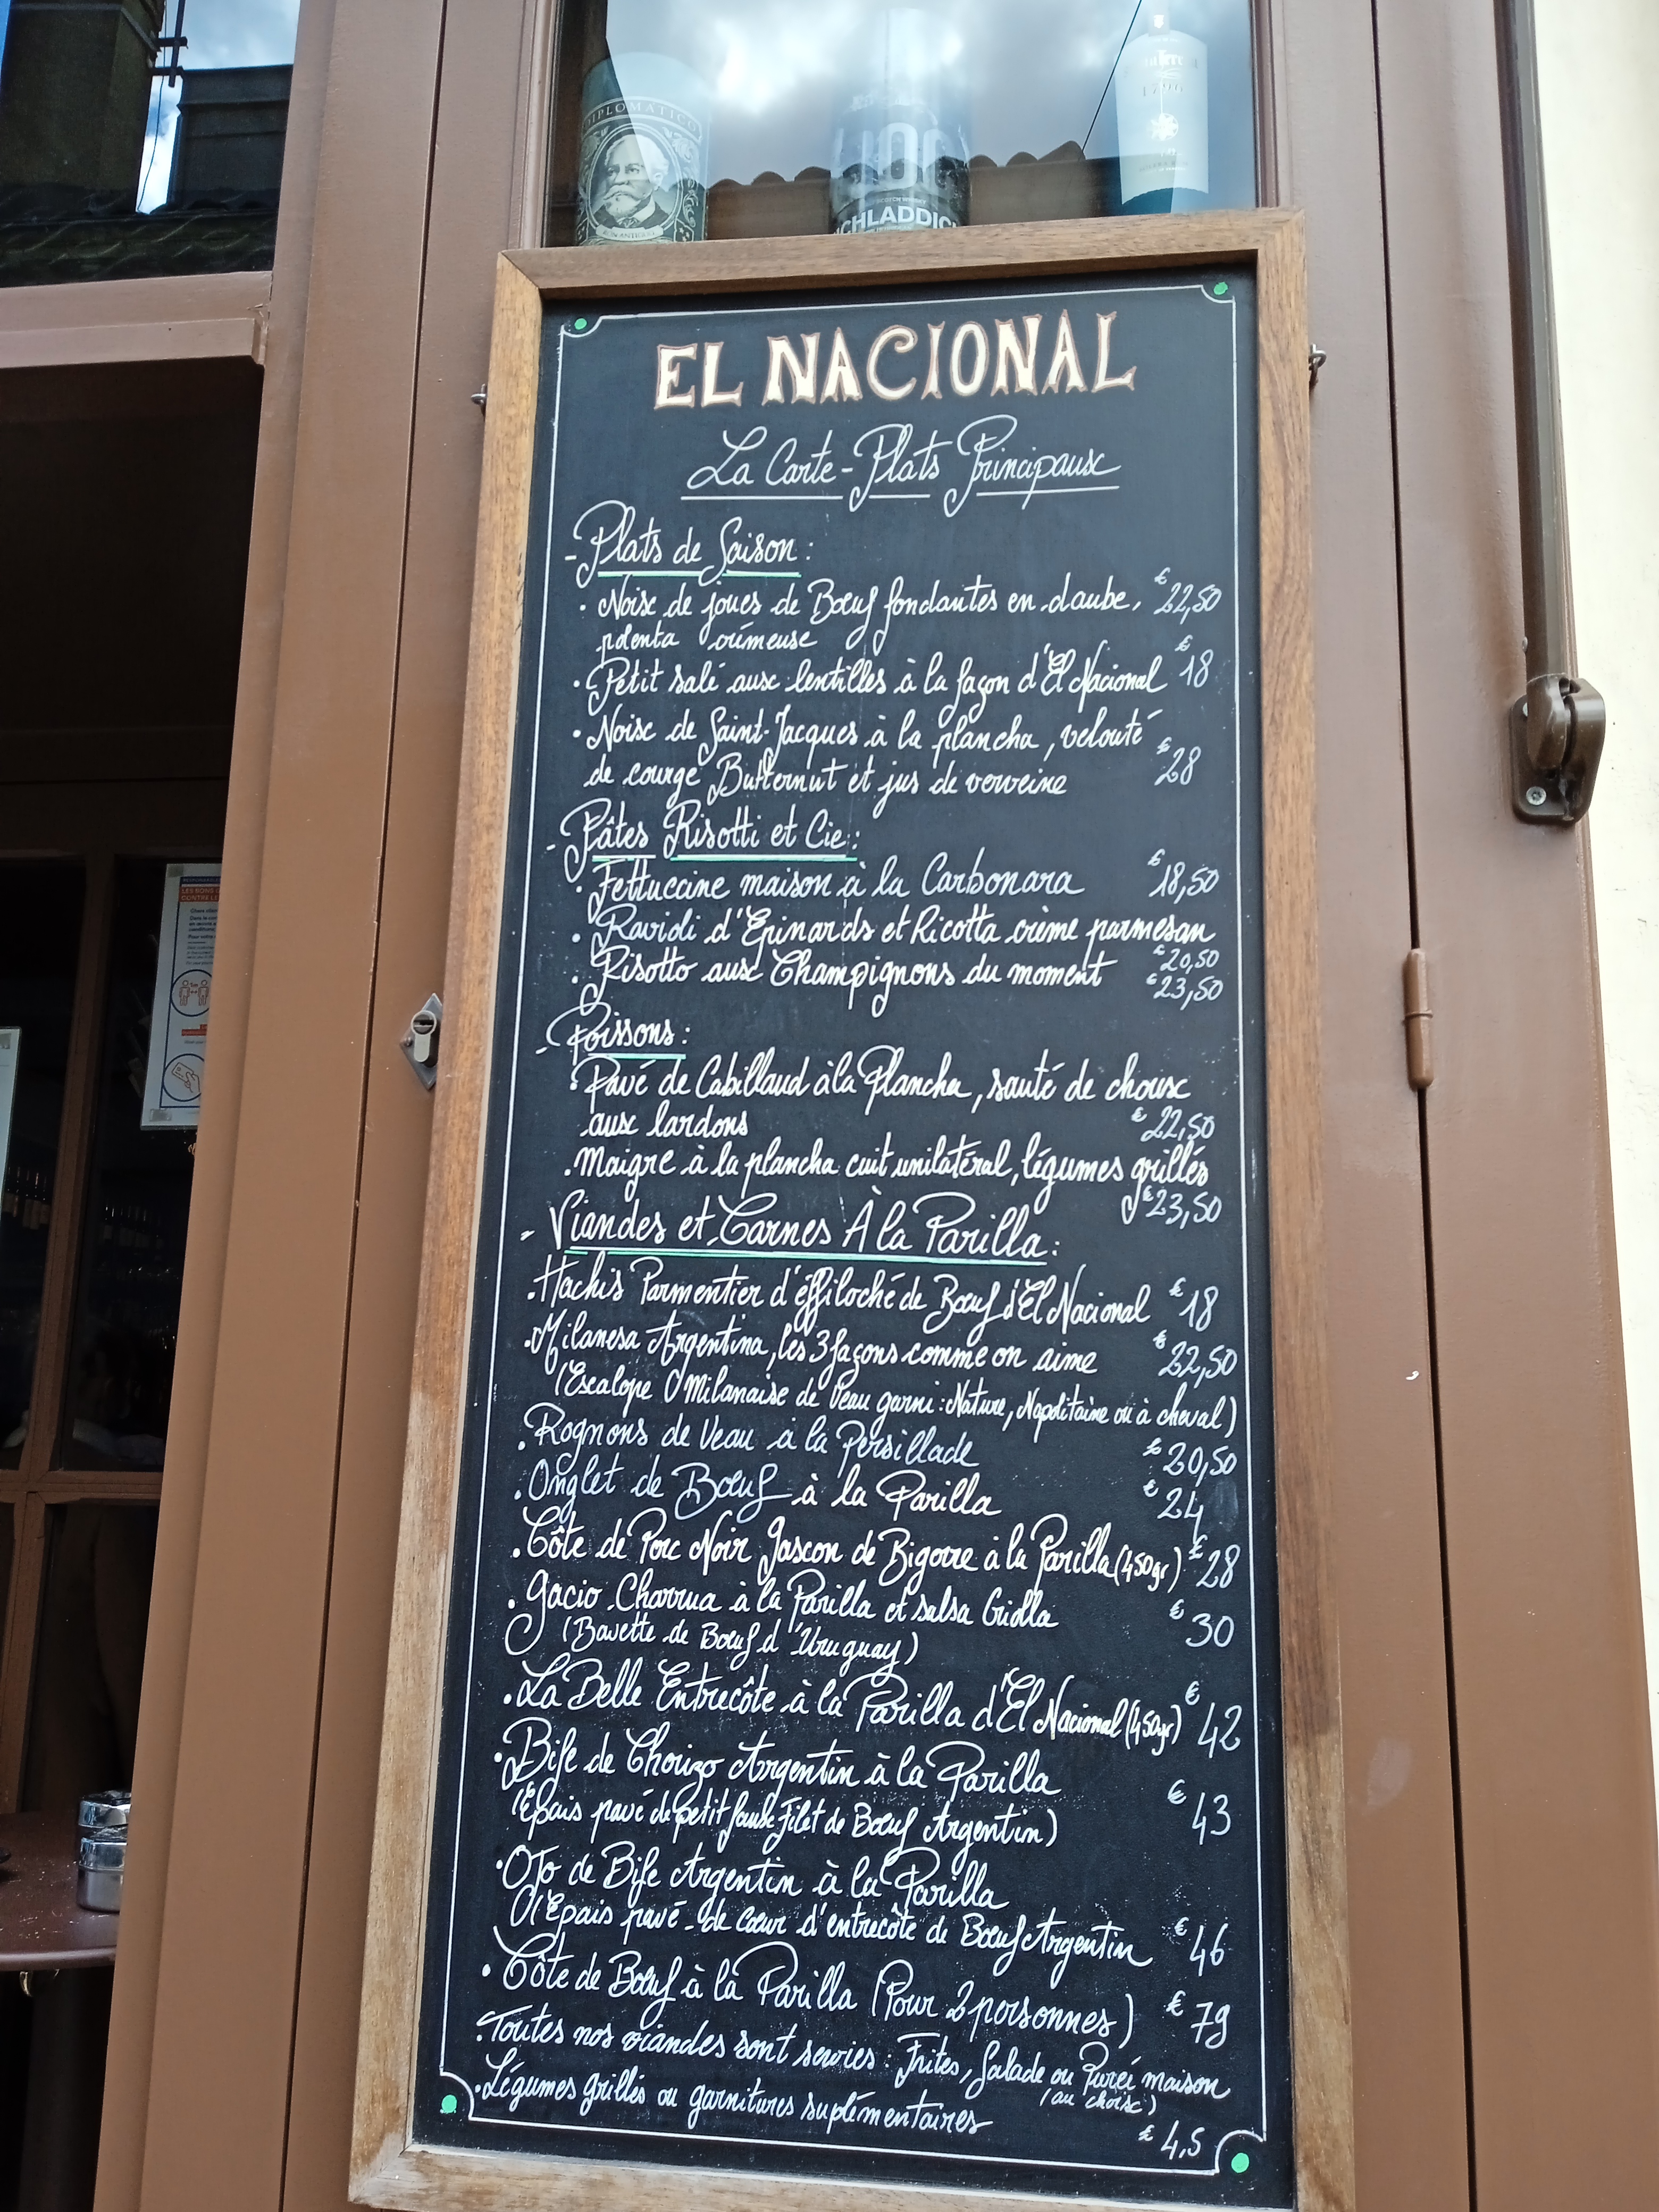 DIPLOMATICO
SCOTCH WHISKY
CHLADDIC
EL NACIONAL
La Carte - Plats Principaux
- Plats de Saison :
• Noix de joues de Bœuf fondantes en daube, €22,50
polenta crémeuse
• Petit salé aux lentilles à la façon d'El Nacional €18
• Noix de Saint-Jacques à la plancha, velouté
de courge Butternut et jus de verveine €28
- Pâtes Risotti et Cie :
• Fettuccine maison à la Carbonara €18,50
• Ravioli d'Epinards et Ricotta crème parmesan
€20,50
• Risotto aux Champignons du moment €23,50
- Poissons :
• Pavé de Cabillaud à la Plancha, sauté de choux
aux lardons €22,50
• Maigre à la plancha cuit unilatéral, légumes grillés
€23,50
- Viandes et Carnes À la Parilla :
• Hachis Parmentier d'éffiloché de Bœuf d'El Nacional €18
• Milanesa Argentina, les 3 façons comme on aime €22,50
(Escalope Milanaise de Veau garni : Nature, Napolitaine ou à cheval)
• Rognons de Veau à la Persillade €20,50
• Onglet de Bœuf à la Parilla €24
• Côte de Porc Noir Gascon de Bigorre à la Parilla (450gr) €28
• Gacio Charrua à la Parilla et salsa Criolla €30
(Bavette de Bœuf d'Uruguay)
• La Belle Entrecôte à la Parilla d'El Nacional (450gr) €42
• Bife de Chorizo Argentin à la Parilla
(Epais pavé de petit faux Filet de Bœuf Argentin) €43
• Ojo de Bife Argentin à la Parilla
(Epais pavé de cœur d'entrecôte de Bœuf Argentin €46
)
• Côte de Bœuf à la Parilla (Pour 2 personnes) €79
• Toutes nos viandes sont servies : Frites, Salade ou Purée maison
(au choix)
• Légumes grillés ou garnitures suplémentaires
€4,5